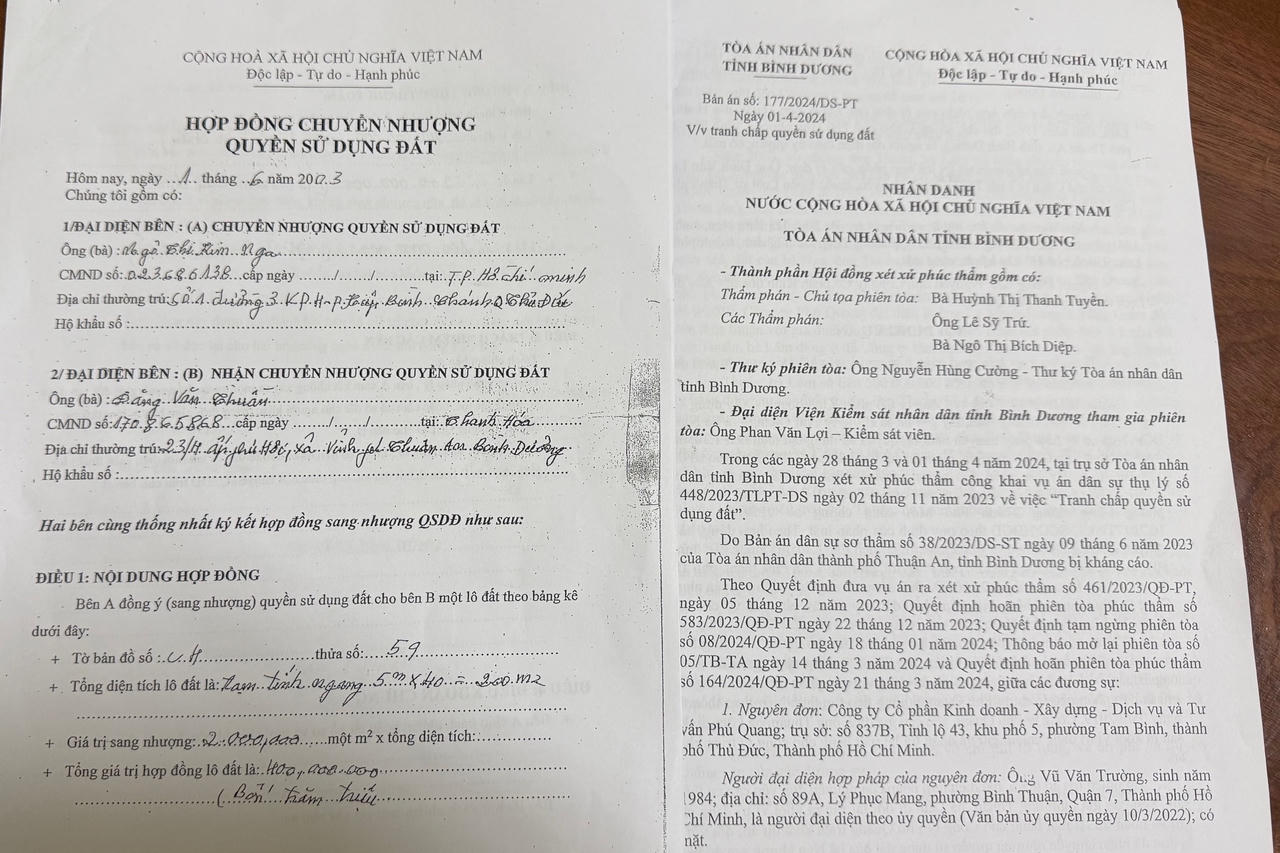 CỘNG HOÀ XÃ HỘI CHỦ NGHĨA VIỆT NAM
Độc lập - Tự do - Hạnh phúc
HỢP ĐỒNG CHUYỂN NHƯỢNG
QUYỀN SỬ DỤNG ĐẤT
Hôm nay, ngày ...1... tháng ..6 năm 2003
Chúng tôi gồm có:
1/ĐẠI DIỆN BÊN : (A) CHUYỂN NHƯỢNG QUYỀN SỬ DỤNG ĐẤT
Ông (bà) : Ngô Thị Kim Nga
CMND số: 023686138 cấp ngày ....../....../............tại: T.P. Hồ Chí Minh
Địa chỉ thường trú: đường 3. KP. H-p. Hiệp Bình Chánh Q Thủ Đức
Hộ khẩu số :
2/ ĐẠI DIỆN BÊN : (B) NHẬN CHUYỂN NHƯỢNG QUYỀN SỬ DỤNG ĐẤT
Ông (bà) : Đặng Văn Thuấn
CMND số: 170865868 cấp ngày ....../....../............tại: Thanh Hóa
Địa chỉ thường trú: 23/4 ấp phú Hội, xã Vĩnh phú Thuận An Bình Dương
Hộ khẩu số :
Hai bên cùng thống nhất ký kết hợp đồng sang nhượng QSDĐ như sau:
ĐIỀU 1: NỘI DUNG HỢP ĐỒNG
Bên A đồng ý (sang nhượng) quyền sử dụng đất cho bên B một lô đất theo bảng kê
dưới đây:
+ Tờ bản đồ số : thửa số: 59
+ Tổng diện tích lô đất là: ngang 5m x 40 = 200 m2
+ Giá trị sang nhượng: 2.000,000 một m² x tổng diện tích:
+ Tổng giá trị hợp đồng lô đất là: 400,000.000
( Bốn trăm triệu
TÒA ÁN NHÂN DÂN
TỈNH BÌNH DƯƠNG
CỘNG HÒA XÃ HỘI CHỦ NGHĨA VIỆT NAM
Độc lập - Tự do - Hạnh phúc
Bản án số: 177/2024/DS-PT
Ngày 01-4-2024
V/v tranh chấp quyền sử dụng đất
NHÂN DANH
NƯỚC CỘNG HÒA XÃ HỘI CHỦ NGHĨA VIỆT NAM
TÒA ÁN NHÂN DÂN TỈNH BÌNH DƯƠNG
- Thành phần Hội đồng xét xử phúc thẩm gồm có:
Thẩm phán - Chủ tọa phiên tòa: Bà Huỳnh Thị Thanh Tuyền.
Các Thẩm phán: Ông Lê Sỹ Trứ.
Bà Ngô Thị Bích Diệp.
- Thư ký phiên tòa: Ông Nguyễn Hùng Cường - Thư ký Tòa án nhân dân
tỉnh Bình Dương.
- Đại diện Viện Kiểm sát nhân dân tỉnh Bình Dương tham gia phiên
tòa: Ông Phan Văn Lợi – Kiểm sát viên.
Trong các ngày 28 tháng 3 và 01 tháng 4 năm 2024, tại trụ sở Tòa án nhân
dân tỉnh Bình Dương xét xử phúc thẩm công khai vụ án dân sự thụ lý số
448/2023/TLPT-DS ngày 02 tháng 11 năm 2023 về việc “Tranh chấp quyền sử
dụng đất”.
Do Bản án dân sự sơ thẩm số 38/2023/DS-ST ngày 09 tháng 6 năm 2023
của Tòa án nhân dân thành phố Thuận An, tỉnh Bình Dương bị kháng cáo.
Theo Quyết định đưa vụ án ra xét xử phúc thẩm số 461/2023/QĐ-PT,
ngày 05 tháng 12 năm 2023; Quyết định hoãn phiên tòa phúc thẩm số
583/2023/QĐ-PT ngày 22 tháng 12 năm 2023; Quyết định tạm ngừng phiên tòa
số 08/2024/QĐ-PT ngày 18 tháng 01 năm 2024; Thông báo mở lại phiên tòa số
05/TB-TA ngày 14 tháng 3 năm 2024 và Quyết định hoãn phiên tòa phúc thẩm
số 164/2024/QĐ-PT ngày 21 tháng 3 năm 2024, giữa các đương sự:
1. Nguyên đơn: Công ty Cổ phần Kinh doanh - Xây dựng - Dịch vụ và Tư
vấn Phú Quang; trụ sở: số 837B, Tỉnh lộ 43, khu phố 5, phường Tam Bình, thành
phố Thủ Đức, Thành phố Hồ Chí Minh.
Người đại diện hợp pháp của nguyên đơn: Ông Vũ Văn Trường, sinh năm
1984; địa chỉ: số 89A, Lý Phục Mang, phường Bình Thuận, Quận 7, Thành phố Hồ
Chí Minh, là người đại diện theo ủy quyền (Văn bản ủy quyền ngày 10/3/2022); có
mặt.